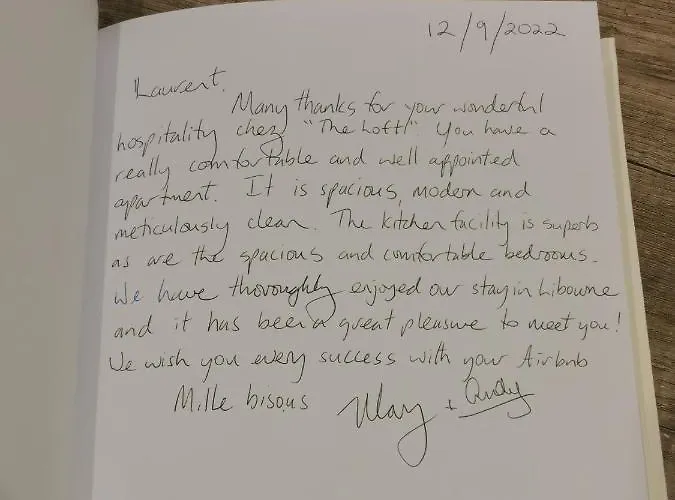 12/9/2022
Laurent.
Many thanks for your wonderful
hospitality chez "The Loft!" You have a
really comfortable and well appointed
apartment. It is spacious, modern and
meticulously clean. The kitchen facility is superb
as are the spacious and comfortable bedrooms.
We have thoroughly enjoyed our stay in Libourne
and it has been a great pleasure to meet you!
We wish you every success with your Airbnb
Mille bisous Mary + Andy